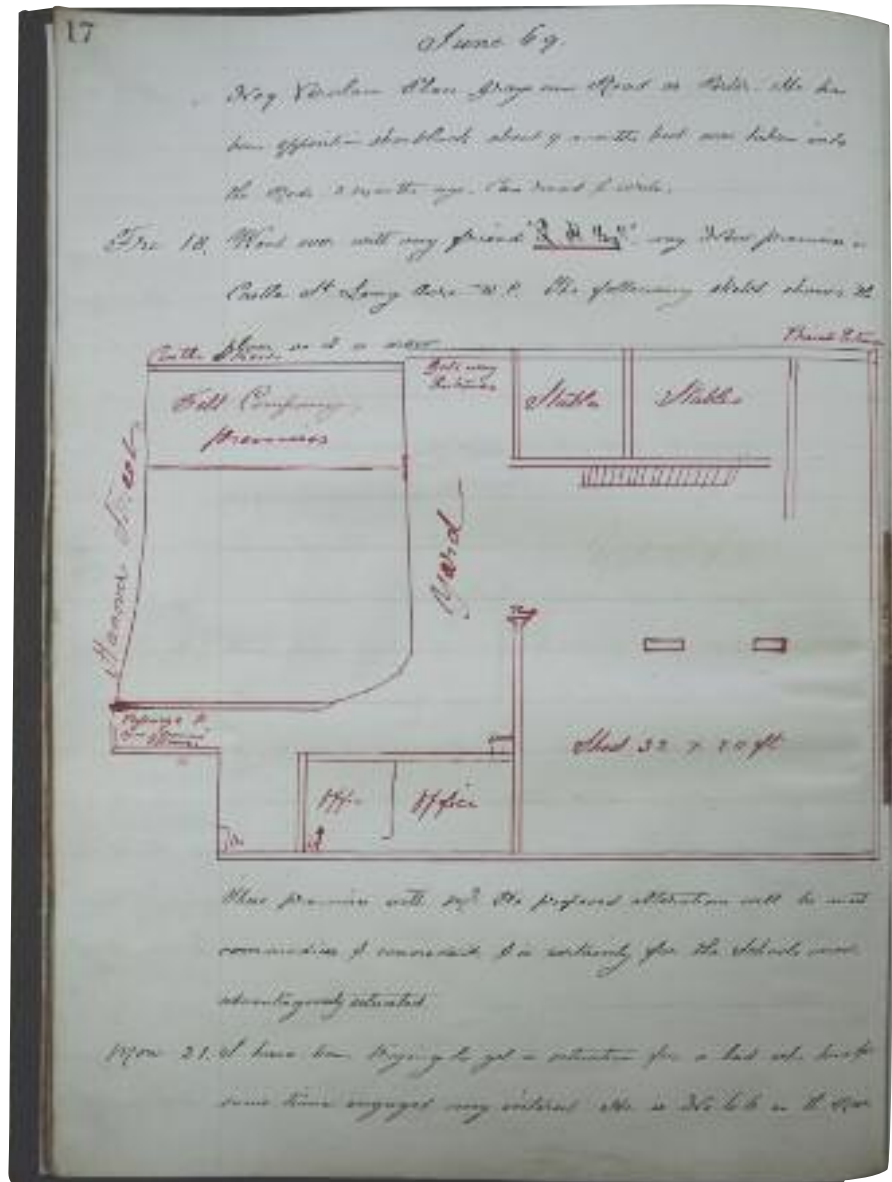 17
June 69.
Road as Porter. He has
been opposition shoeblack about 9 months but was taken into
the months ago. Can read & write.
Fri 18. Went over with my friend my new premises in
Castle St Long Acre W.C. The following sketch shews the
plan as it is now
Castle Street
Private Entrance
Gateway
Entrance
Felt Company
premises
Stable
Stables
Hanover Street
Yard
Passage &
Shed 32 x 20 ft
Office
Office
These premises with the proposed alteration will be most
commodious & convenient, & is certainly for the Schools most
advantageously situated
Mon 21. I have been trying to get a situation for a lad who has for
some time engaged my interest. He is No 66 in the